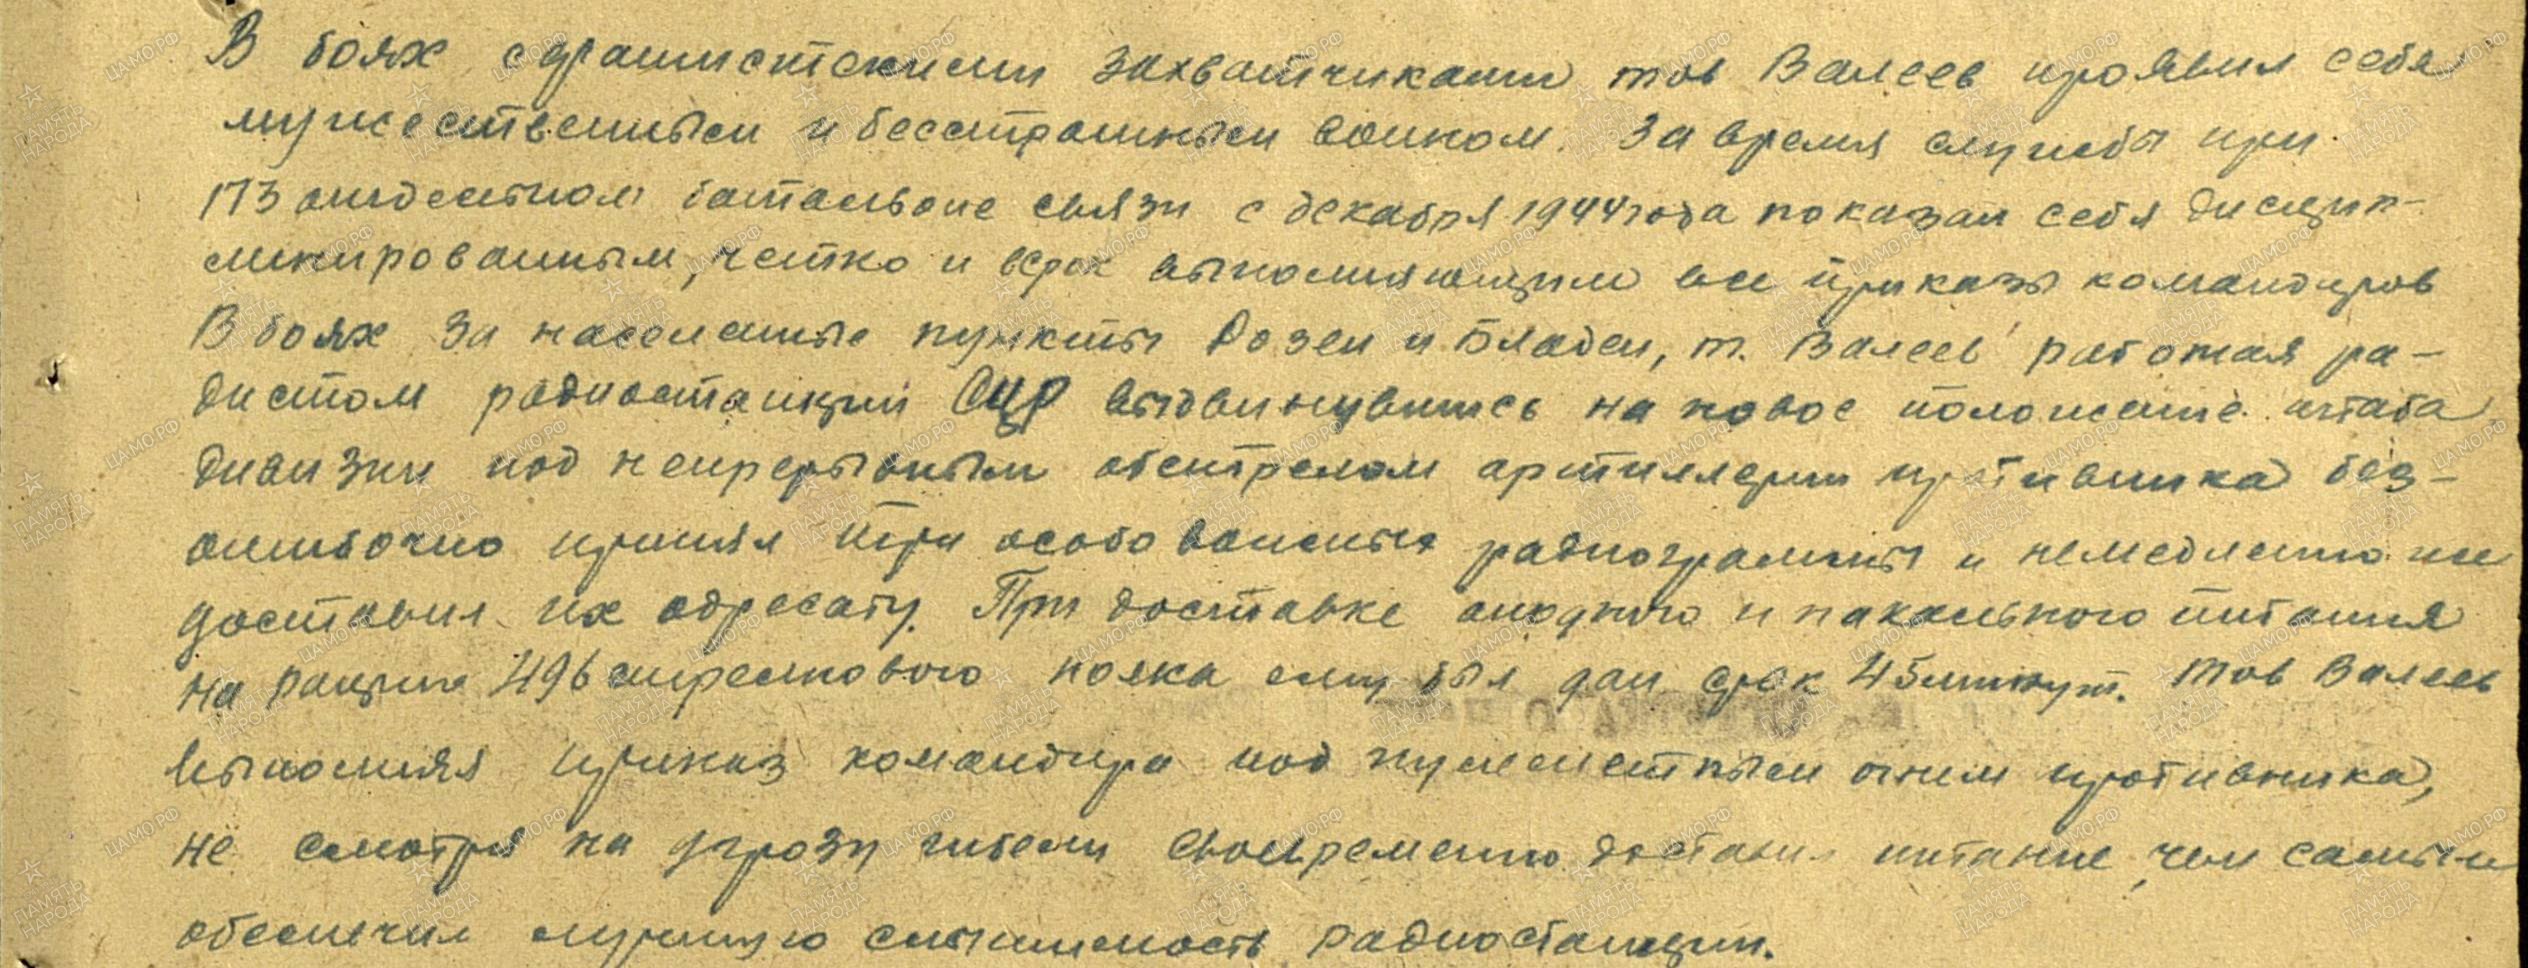 В боях с фашистскими захватчиками тов Валеев проявил себя
мужественным и бесстрашным воином. За время службы при
173 отдельном батальоне связи с декабря 1944 года показал себя дисцип-
линированным, четко и в срок выполняющим все приказы командиров
В боях за населенные пункты Розен и Бладен, т. Валеев работая ра-
дистом радиостанции СЦР выдвинувшись на новое положение штаба
дивизии под непрерывным обстрелом артиллерии противника без-
ошибочно принял три особо важные радиограммы и немедленно же
доставил их адресату. При доставке анодного и накального питания
на рацию 496 стрелкового полка ему был дан срок 45 минут. Тов Валеев
выполняя приказ командира под пулеметным огнем противника,
не смотря на угрозу гибели своевременно доставил питание, чем самым
обеспечил лучшую слышимость радиостанции.
ЦАМО.РФ
ПАМЯТЬ НАРОДА